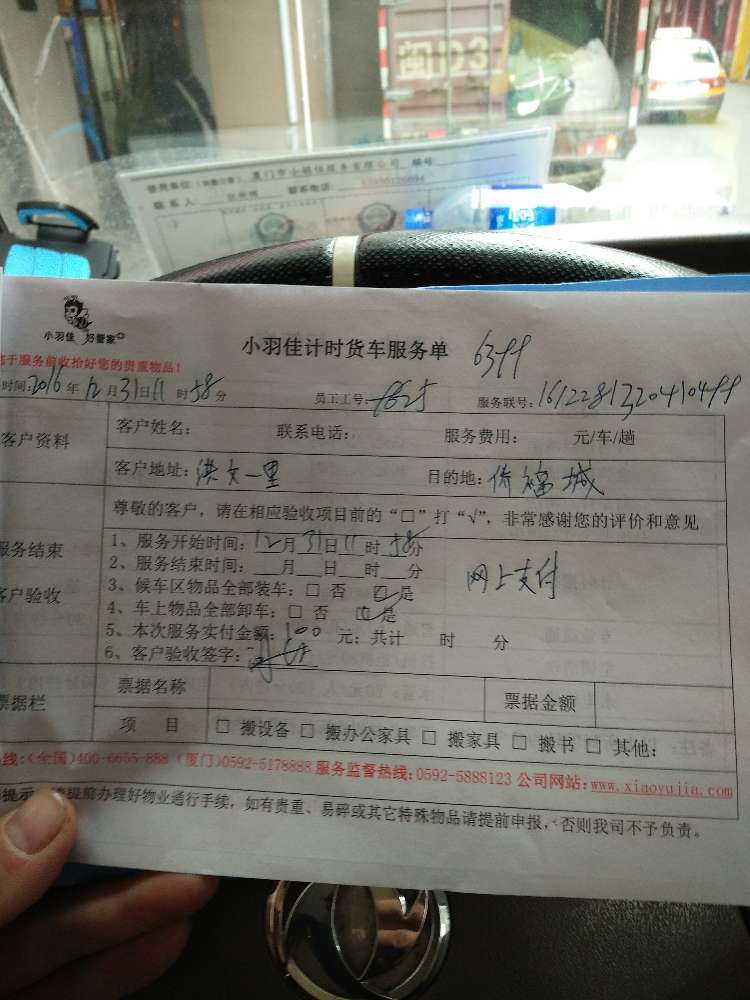 闽D3
使用单位:(块数公章), 厦门市小羽佳服务有限公司 编号
联系人: 联系电话:
小羽佳 好管家
小羽佳计时货车服务单 6399
于服务前收拾好您的贵重物品!
时间:2016年12月31日11时58分 员工工号: 1825 服务联号:1612281320410499
客户资料
客户姓名: 联系电话: 服务费用: 元/车/趟
客户地址:洪文一里 目的地:侨福城
服务结束
客户验收
尊敬的客户,请在相应验收项目前的“□”打“√”,非常感谢您的评价和意见
1、服务开始时间:12月31日11时58分
2、服务结束时间:___月___日___时___分
3、候车区物品全部装车:□ 否 ☑ 是
4、车上物品全部卸车:□ 否 ☑ 是
5、本次服务实付金额:100 元;共计 时 分
6、客户验收签字:
网上支付
票据栏
票据名称 票据金额
项 目 □ 搬设备 □ 搬办公家具 □ 搬家具 □ 搬书 □ 其他:
线:(全国)400-6655-888 (厦门)0592-5178888 服务监督热线:0592-5888123 公司网站:www.xiaoyujia.com
提示:请提前办理好物业通行手续,如有贵重、易碎或其它特殊物品请提前申报,否则我司不予负责。